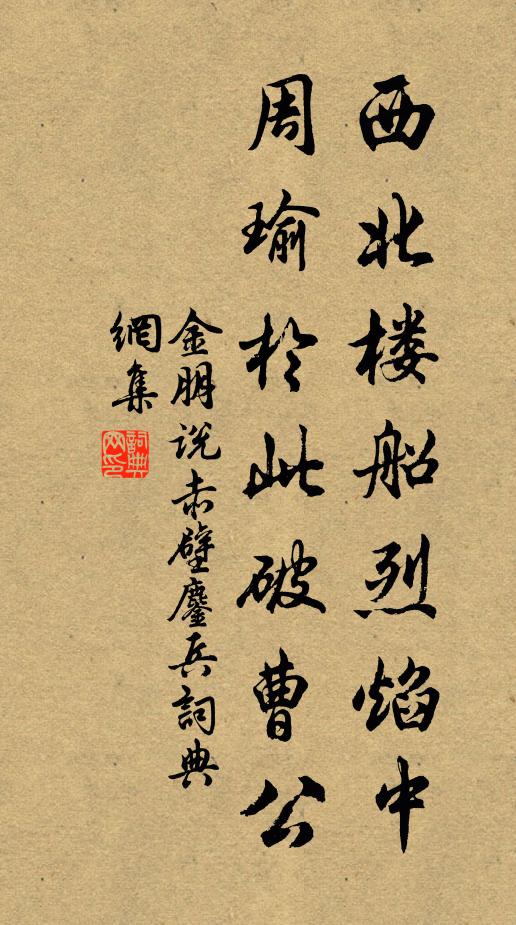 西北楼船烈焰中
周瑜於此破曹公
金朋说赤壁鏖兵詞典
網集
詞典網印